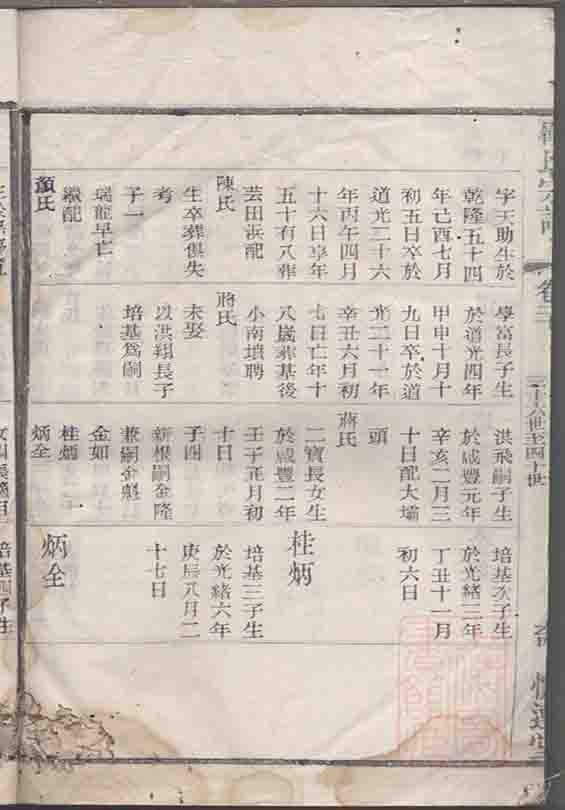 字天助生於
乾隆五十四
年己酉七月
初五日卒於
道光二十六
年丙午四月
十六日享年
五十有八葬
芸田浜配
陳氏
生卒葬俱失
考
子一
瑞龍早亡
繼配
顏氏
學富長子生
於道光四年
甲申十月十
九日卒於道
光二十一年
辛丑六月初
七日亡年十
八歲葬基後
小南墳聘
蔣氏
未娶
以洪翔長子
培基為嗣
洪飛嗣子生
於咸豐元年
辛亥二月三
十日配大壩
頭
蔣氏
二寶長女生
於咸豐二年
壬子正月初
十日
子四
新根嗣金隆
兼嗣金魁
金如
桂炳
炳全
培基次子生
於光緒三年
丁丑十一月
初六日
桂炳
培基三子生
於光緒六年
庚辰八月二
十七日
炳全
卷三
三十六世至四十世